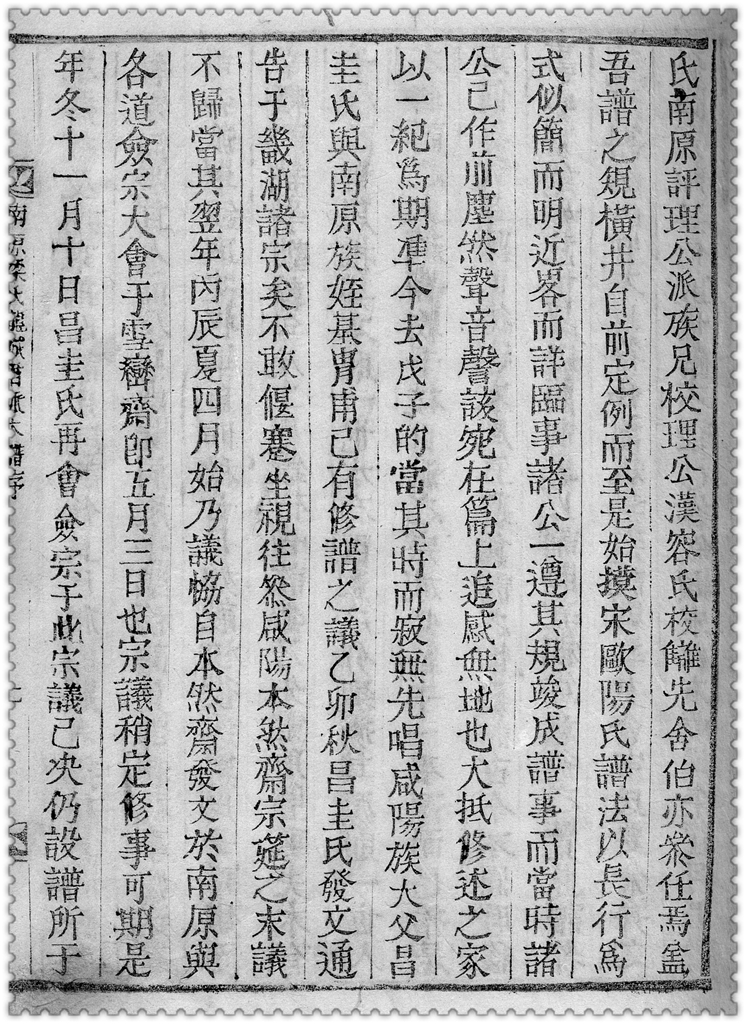 氏南原評理公派族兄校理公漢容氏校讎先舍伯亦叅任焉盖
吾譜之規橫井自前定例而至是始摸宋歐陽氏譜法以長行爲
式似簡而明近畧而詳臨事諸公一遵其規竣成譜事而當時諸
公已作前塵然聲音謦該宛在篇上追感無地也大抵修述之家
以一紀爲期凖今去戊子的當其時而寂無先唱咸陽族大父昌
圭氏與南原族姪基胄甫已有修譜之議乙卯秋昌圭氏發文通
告于畿湖諸宗矣不敢偃蹇坐視往叅咸陽本然齋宗筵之末議
不歸當其翌年丙辰夏四月始乃議恊自本然齋發文於南原與
各道僉宗大會于雪巒齋卽五月三日也宗議稍定修事可期是
年冬十一月十日昌圭氏再會僉宗于此宗議已决仍設譜所于
南原梁氏 派大譜序